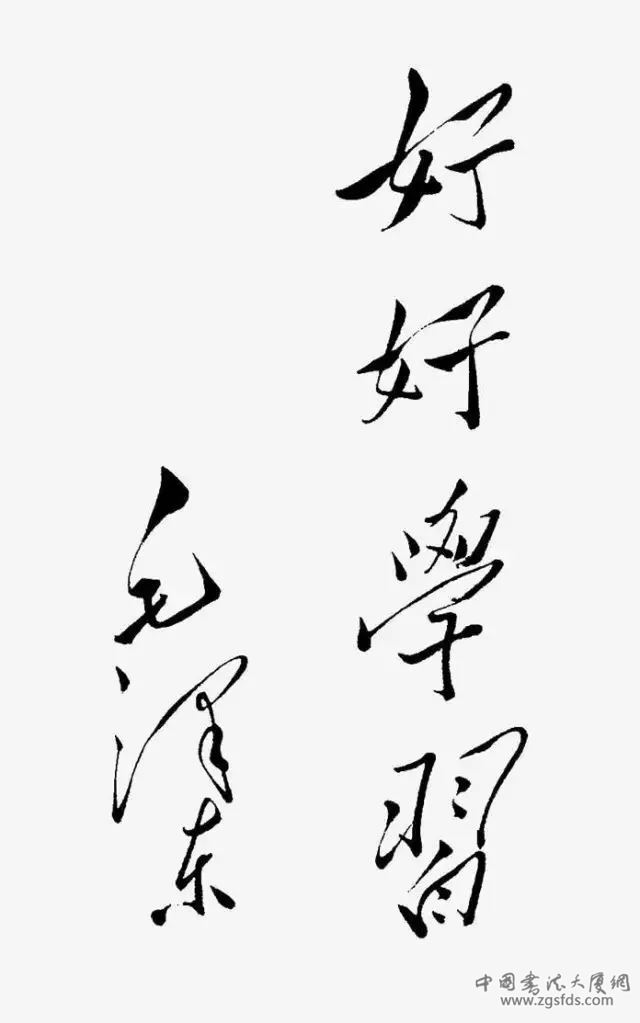 好好學習
毛泽东
中国书法大厦網
www.zgsfds.com